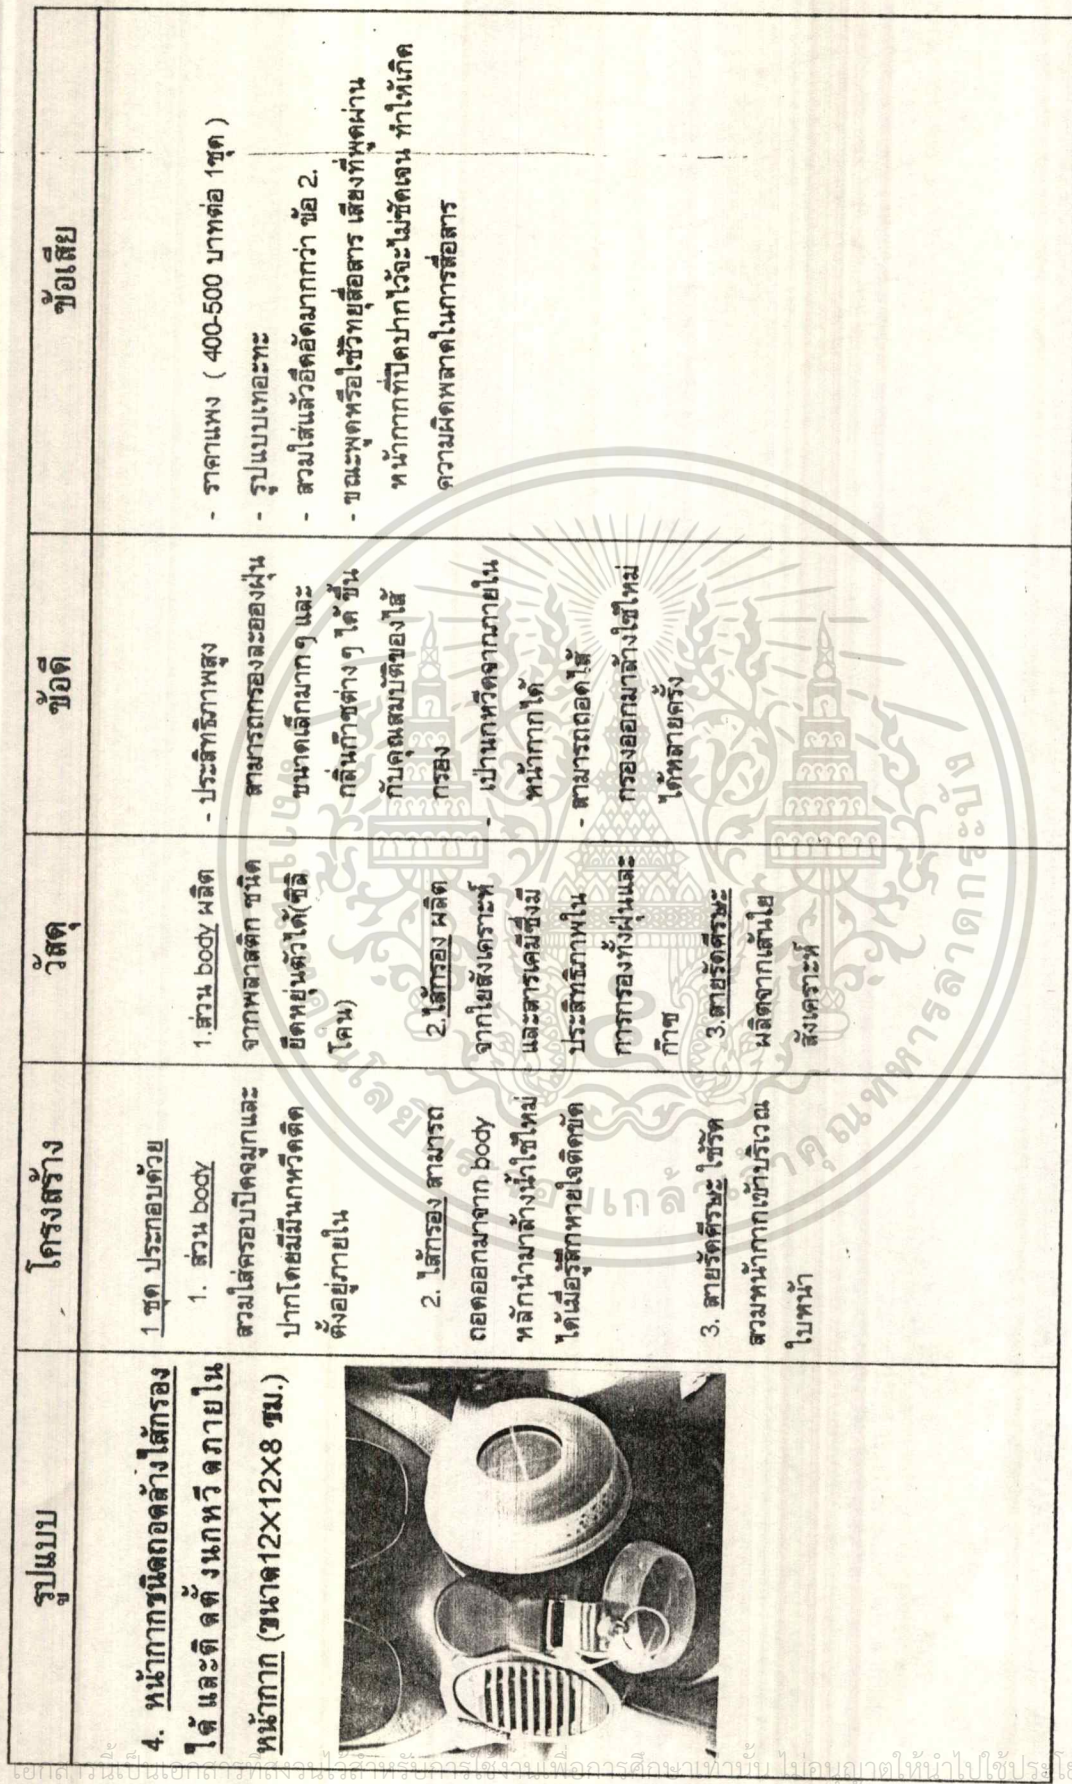 รูปแบบ
โครงสร้าง
วัสดุ
ข้อดี
ข้อเสีย
4. หน้ากากชนิดถอดล้างไส้กรอง
ได้ และติดตั้งนกหวีดภายใน
หน้ากาก (ขนาด12X12X8 ซม.)
1 ชุด ประกอบด้วย
1. ส่วน body
สวมใส่ครอบปิดจมูกและ
ปากโดยมีมีนกหวีดติด
ตั้งอยู่ภายใน
2. ไส้กรอง สามารถ
ถอดออกมาจาก body
หลักนำมาล้างน้ำใช้ใหม่
ได้เมื่อรู้สึกหายใจติดขัด
3. สายรัดศีรษะ ใช้รัด
สวมหน้ากากเข้าบริเวณ
ใบหน้า
1.ส่วน body ผลิต
จากพลาสติก ชนิด
ยืดหยุ่นตัวได้(ซิลิ
โคน)
2.ไส้กรอง ผลิต
จากใยสังเคราะห์
และสารเคมีซึ่งมี
ประสิทธิภาพใน
การกรองทั้งฝุ่นและ
ก๊าซ
3.สายรัดศีรษะ
ผลิตจากเส้นใย
สังเคราะห์
- ประสิทธิภาพสูง
สามารถกรองละอองฝุ่น
ขนาดเล็กมาก ๆ และ
กลิ่นก๊าซต่าง ๆ ได้ ขึ้น
กับคุณสมบัติของไส้
กรอง
- เป่านกหวีดจากภายใน
หน้ากากได้
- สามารถถอดไส้
กรองออกมาล้างใช้ใหม่
ได้หลายครั้ง
- ราคาแพง ( 400-500 บาทต่อ 1ชุด )
- รูปแบบเทอะทะ
- สวมใส่แล้วอึดอัดมากกว่า ข้อ 2.
- ขณะพูดหรือใช้วิทยุสื่อสาร เสียงที่พูดผ่าน
หน้ากากที่ปิดปากไว้จะไม่ชัดเจน ทำให้เกิด
ความผิดพลาดในการสื่อสาร
เอกสารนี้เป็นเอกสารที่สงวนไว้สำหรับการใช้งานเพื่อการศึกษาเท่านั้น ไม่อนุญาตให้นำไปใช้ประโย